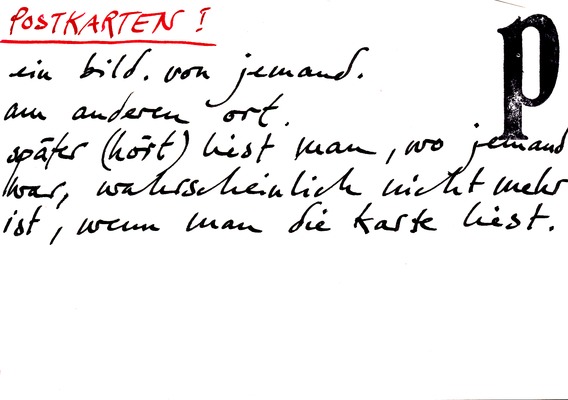 POSTKARTEN!
p
ein bild. von jemand.
am anderen ort.
später (hört) liest man, wo jemand
war, wahrscheinlich nicht mehr
ist, wenn man die karte liest.